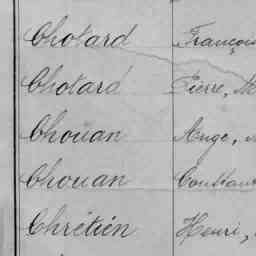 Chotard François
Chotard Pierre, M
Chouan Ange,
Chouan Constant
Chrétien Henri,